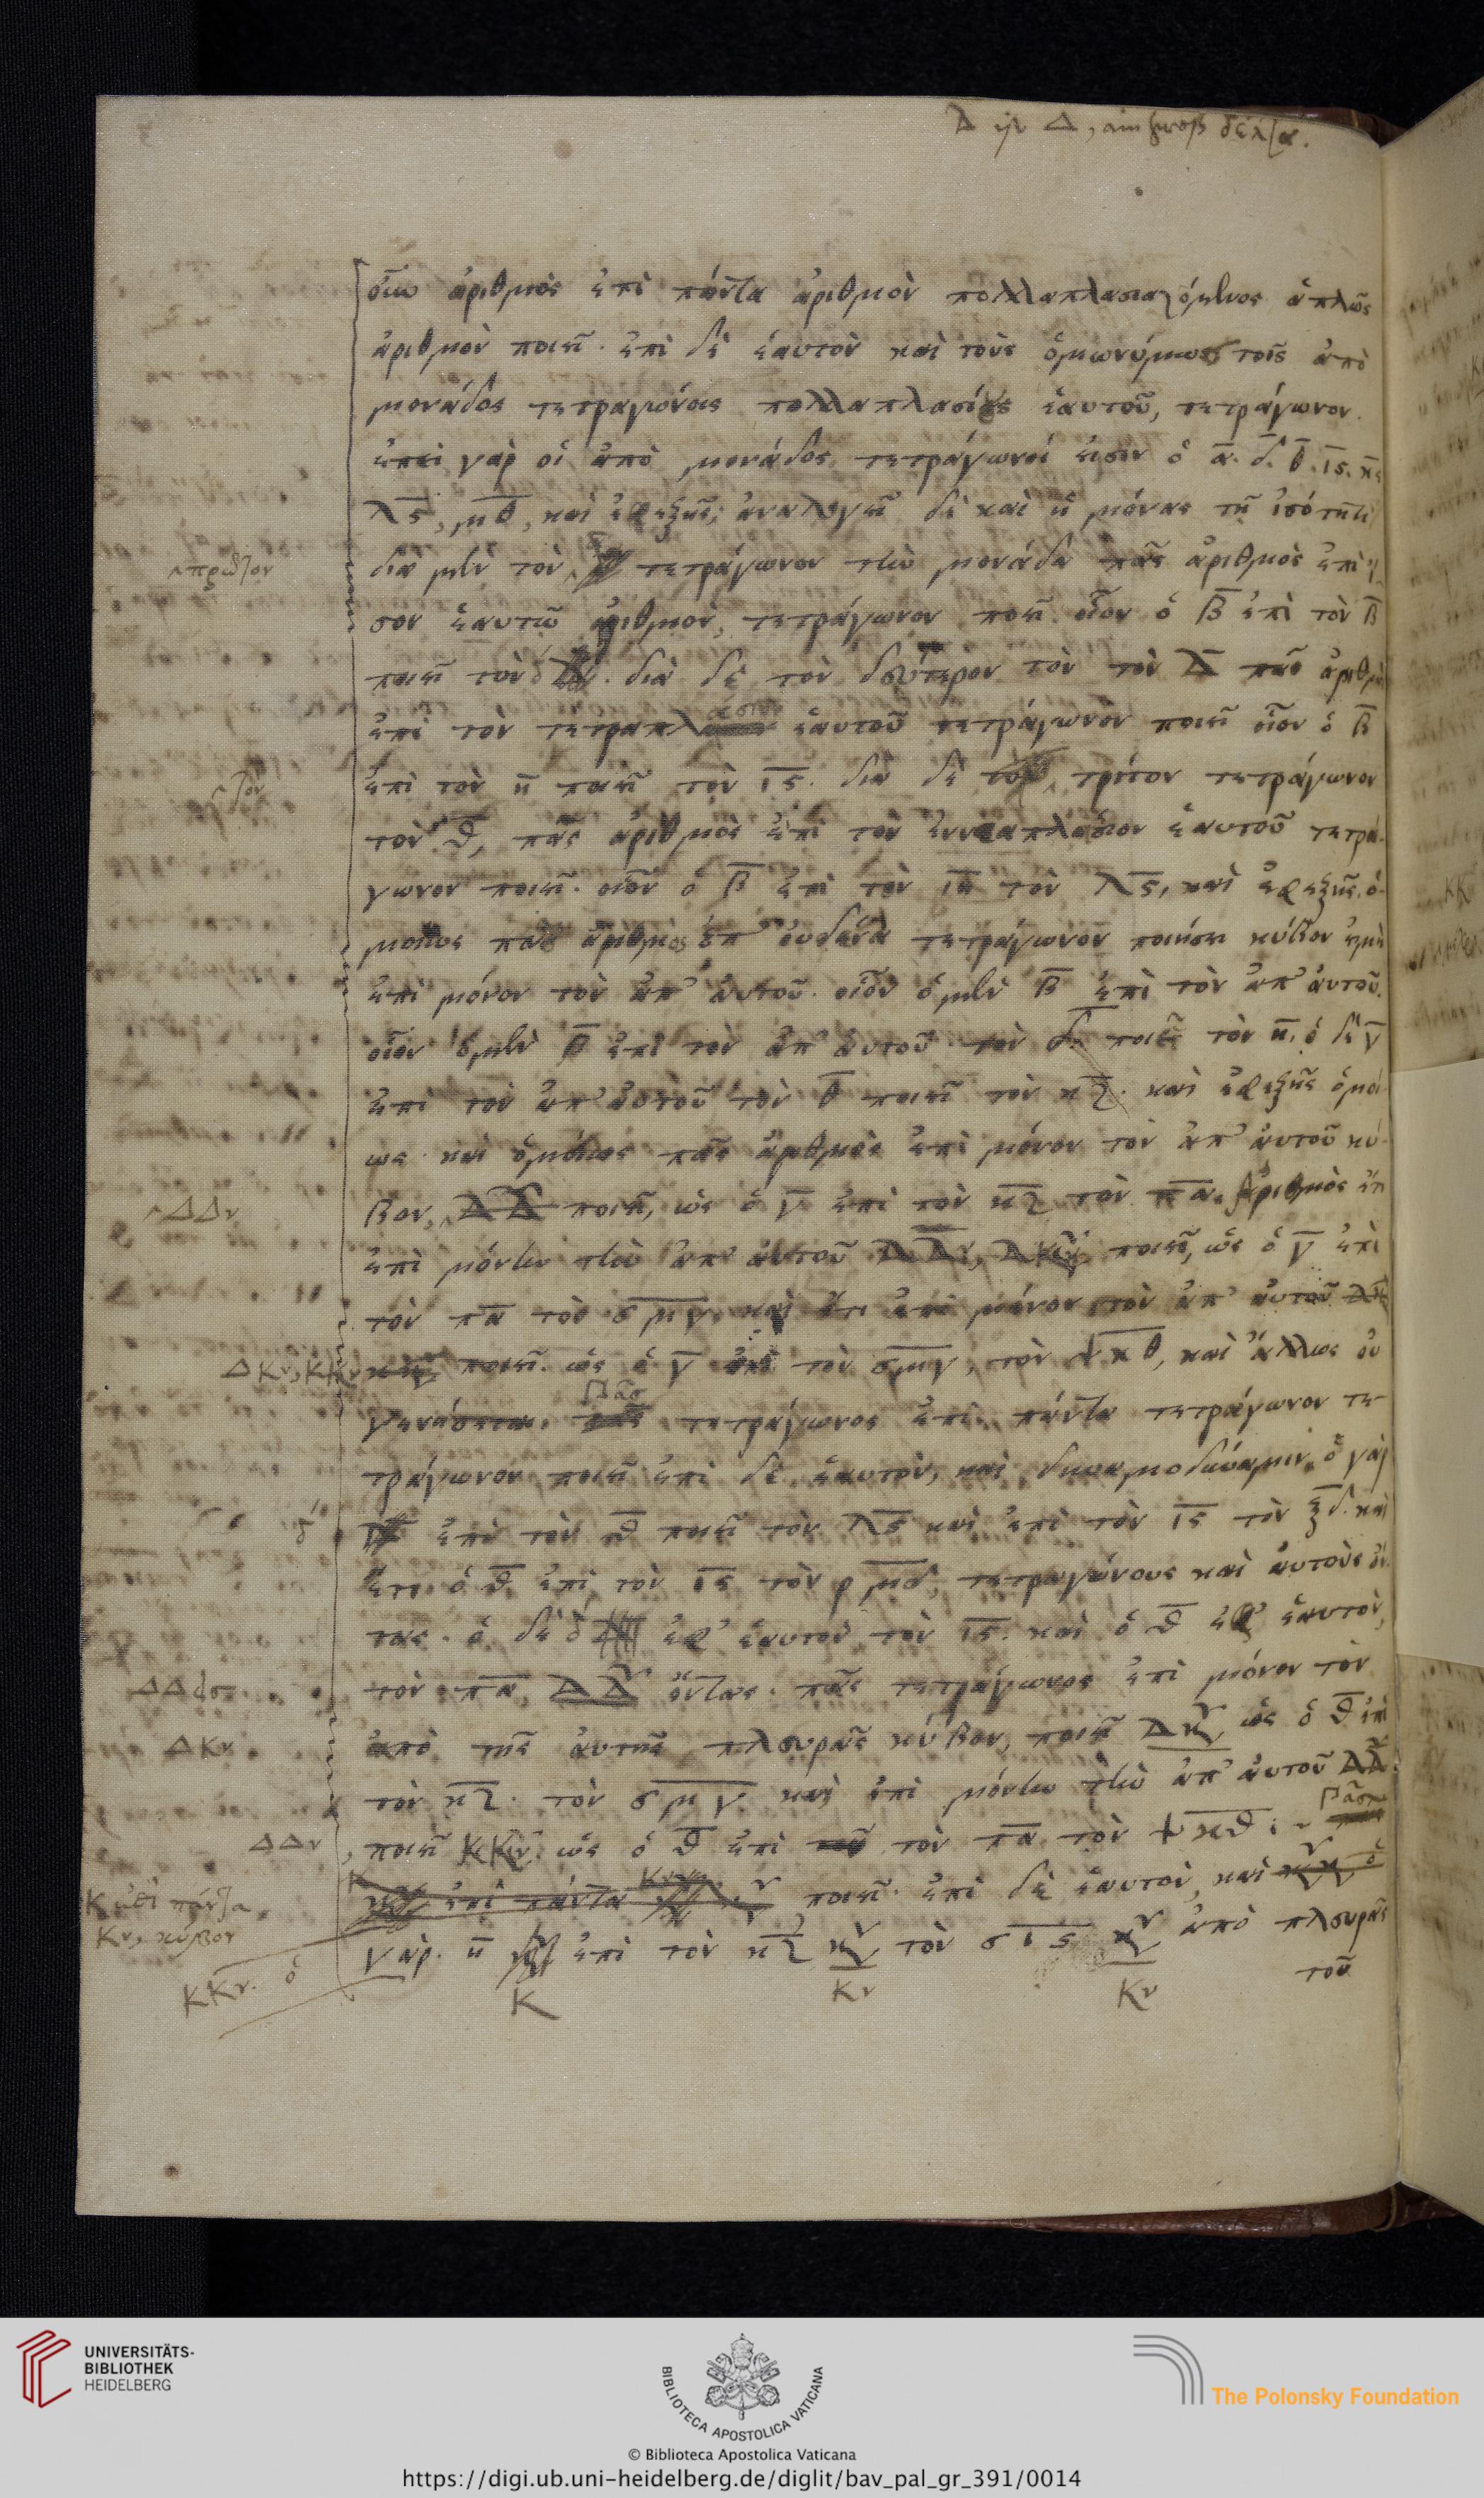 Δ , δέλτα.
ἀριθμὸς ἐπὶ πάντα ἀριθμὸν πολλαπλασιαζόμενος ἁπλῶς
ἀριθμὸν ποιεῖ. ἐπὶ δὲ ἑαυτὸν καὶ τοὺς ὁμωνύμως τοῖς ἀπὸ
μονάδος τετραγώνοις πολλαπλασίους ἑαυτοῦ, τετράγωνον.
ἐπεὶ γὰρ οἱ ἀπὸ μονάδος τετράγωνοί εἰσιν ὁ α. δ. θ. ις. κε
λς, μθ, καὶ ἐφεξῆς, ἀναλογεῖ δὲ καὶ ἡ μόνας τῇ ἰσότητι
πρῶτον
διὰ μὲν τὸν τετράγωνον τὴν μονάδα πᾶς ἀριθμὸς ἐπὶ ἴ
σον ἑαυτῷ ἀριθμὸν, τετράγωνον ποιεῖ. οἷον ὁ β ἐπὶ τὸν β
ποιεῖ τὸν δ. διὰ δὲ τὸν δεύτερον τὸν τὸν Δ πᾶς ἀριθμὸ
ἐπὶ τὸν τετραπλάσιον ἑαυτοῦ τετράγωνον ποιεῖ οἷον ὁ β
τὸν
ἐπὶ τὸν η ποιεῖ τὸν ις. διὰ δὲ τρίτον τετράγωνον
τὸν θ, πᾶς ἀριθμὸς ἐπὶ τὸν ἐννεαπλάσιον ἑαυτοῦ τετρά-
γωνον ποιεῖ. οἷον ὁ β ἐπὶ τὸν ιη τὸν λς, καὶ ἐφεξῆς. ὁ-
μοίως πᾶς ἀριθμὸς ἐπ' οὐδένα τετράγωνον ποιήσει κύβον εἰμὴ
ἐπὶ μόνον τὸν ἀπ' αὐτοῦ. οἷον ὁ μὲν β ἐπὶ τὸν ἀπ' αὐτοῦ.
οἷον ὁ μὲν β ἐπὶ τὸν ἀπ' αὐτοῦ τὸν δ. ποιεῖ τὸν η. ὁ δὲ γ
ἐπὶ τὸν ἀπ' αὐτοῦ τὸν θ ποιεῖ τὸν κζ. καὶ ἐφεξῆς ὁμοί
ως. καὶ ὁμοίως πᾶς ἀριθμὸς ἐπὶ μόνον τὸν ἀπ' αὐτοῦ κύ-
ΔΔν
βον, ΔΔ ποιεῖ, ὡς ὁ γ ἐπὶ τὸν κζ τὸν πα. ἀριθμὸς ἔτι
ἐπὶ μόνην τὴν ἀπ' αὐτοῦ ΔΔν, Δκν ποιεῖ, ὡς ὁ γ ἐπὶ
τὸν πα τὸν σμγ. καὶ ἔτι ἐπὶ μόνον τὸν ἀπ' αὐτοῦ Δκ
ΔΚν, ΚΚν
ποιεῖ. ὡς ὁ γ ἐπὶ τὸν σμγ, τὸν ψκθ, καὶ ἄλλως οὐ
γενήσεται. Πᾶς τετράγωνος ἐπὶ πάντα τετράγωνον τε-
τράγωνον ποιεῖ ἐπὶ δὲ ἑαυτὸν, καὶ δυναμοδύναμιν. ὁ γὰρ
δ
ἐπὶ τὸν θ ποιεῖ τὸν λς καὶ ἐπὶ τὸν ις τὸν ξδ. καὶ
ἔτι ὁ θ ἐπὶ τὸν ις τὸν ρμδ, τετραγώνους καὶ αὐτοὺς ὄν
τας. ὁ δὲ δ ἐφ' ἑαυτὸν τὸν ις. καὶ ὁ θ ἐφ' ἑαυτὸν,
ΔΔεισ
τὸν πα ΔΔν ὄντας. πᾶς τετράγωνος ἐπὶ μόνον τὸν
ΔΚν
ἀπὸ τῆς αὐτῆς πλευρᾶς κύβον, ποιεῖ Δκν ὡς ὁ θ ἐπὶ
τὸν κζ. τὸν σμγ καὶ ἐπὶ μόνην τὴν ἀπ' αὐτοῦ ΔΔ.
ΔΔν
ποιεῖ ΚΚν, ὡς ὁ θ ἐπὶ τὸν πα τὸν ψκθ :~ Πᾶσ
Κ ἐπὶ πάντα
Κν, κύβον
ἐπὶ πάντα ποιεῖ. ἐπὶ δὲ ἑαυτὸν, καὶ
ΚΚν. ὁ
γὰρ η ἐπὶ τὸν κζ κν τὸν σις κν ἀπὸ πλευρᾶς
Κ Κν Κν
τοῦ
UNIVERSITÄTS-
BIBLIOTHEK
HEIDELBERG
BIBLIOTECA APOSTOLICA VATICANA
The Polonsky Foundation
© Biblioteca Apostolica Vaticana
https://digi.ub.uni-heidelberg.de/diglit/bav_pal_gr_391/0014